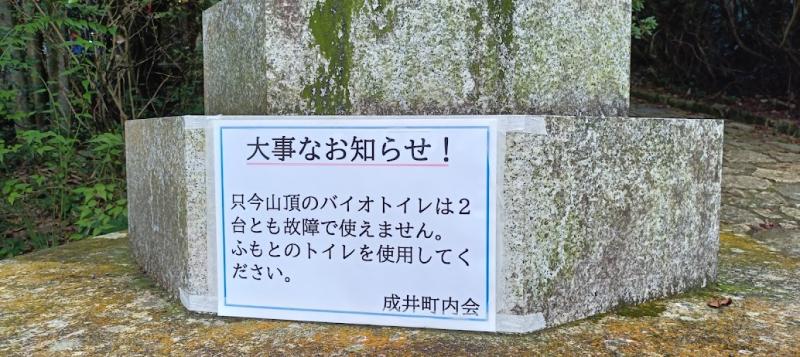 大事なお知らせ！
只今山頂のバイオトイレは２
台とも故障で使えません。
ふもとのトイレを使用してく
ださい。
成井町内会